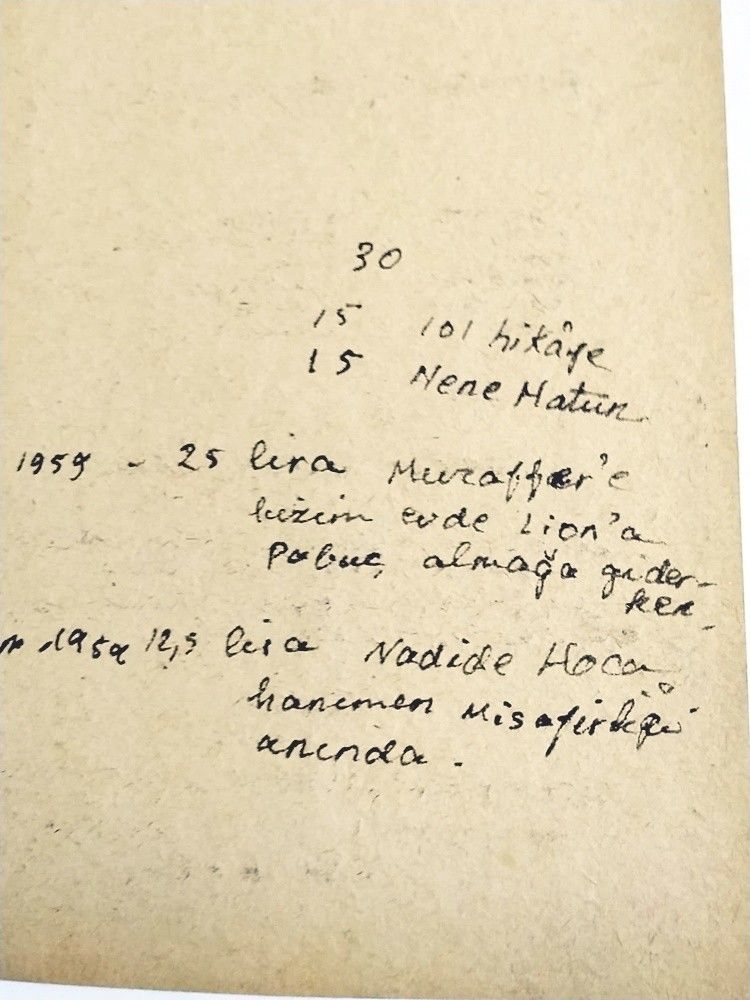 30
15 101 hikâye
15 Nene Hatun
1959 - 25 lira Muzaffer'e
bizim evde Lion'a
Pabuç almağa gider-
ken.
1959 12,5 lira Nadide Hoca
hanımın misafirliği
anında.